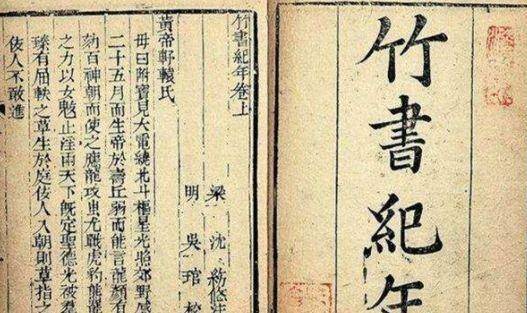 竹書紀年
竹書紀年卷上
梁 沈 約
明 吳 琯 校
黃帝軒轅氏
母曰附寶見大電繞北斗樞星光照郊野感
二十五月而生帝於壽丘弱而能言龍顏有
劾百神朝而使之應龍攻蚩尤戰虎豹熊羆
之力以女魃止淫雨天下既定聖德光被羣
臻有屈軼之草生於庭佞人入朝則草指之
佞人不敢進